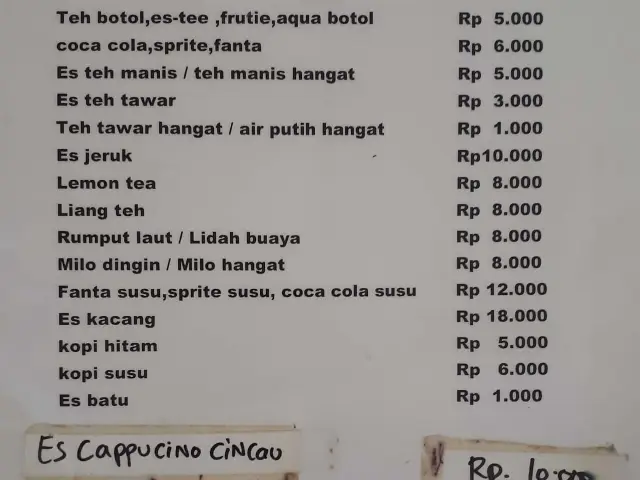 Teh botol,es-tee ,frutie,aqua botol Rp 5.000
coca cola,sprite,fanta Rp 6.000
Es teh manis / teh manis hangat Rp 5.000
Es teh tawar Rp 3.000
Teh tawar hangat / air putih hangat Rp 1.000
Es jeruk Rp10.000
Lemon tea Rp 8.000
Liang teh Rp 8.000
Rumput laut / Lidah buaya Rp 8.000
Milo dingin / Milo hangat Rp 8.000
Fanta susu,sprite susu, coca cola susu Rp 12.000
Es kacang Rp 18.000
kopi hitam Rp 5.000
kopi susu Rp 6.000
Es batu Rp 1.000
Es Cappucino CiNCau Rp. 10.000